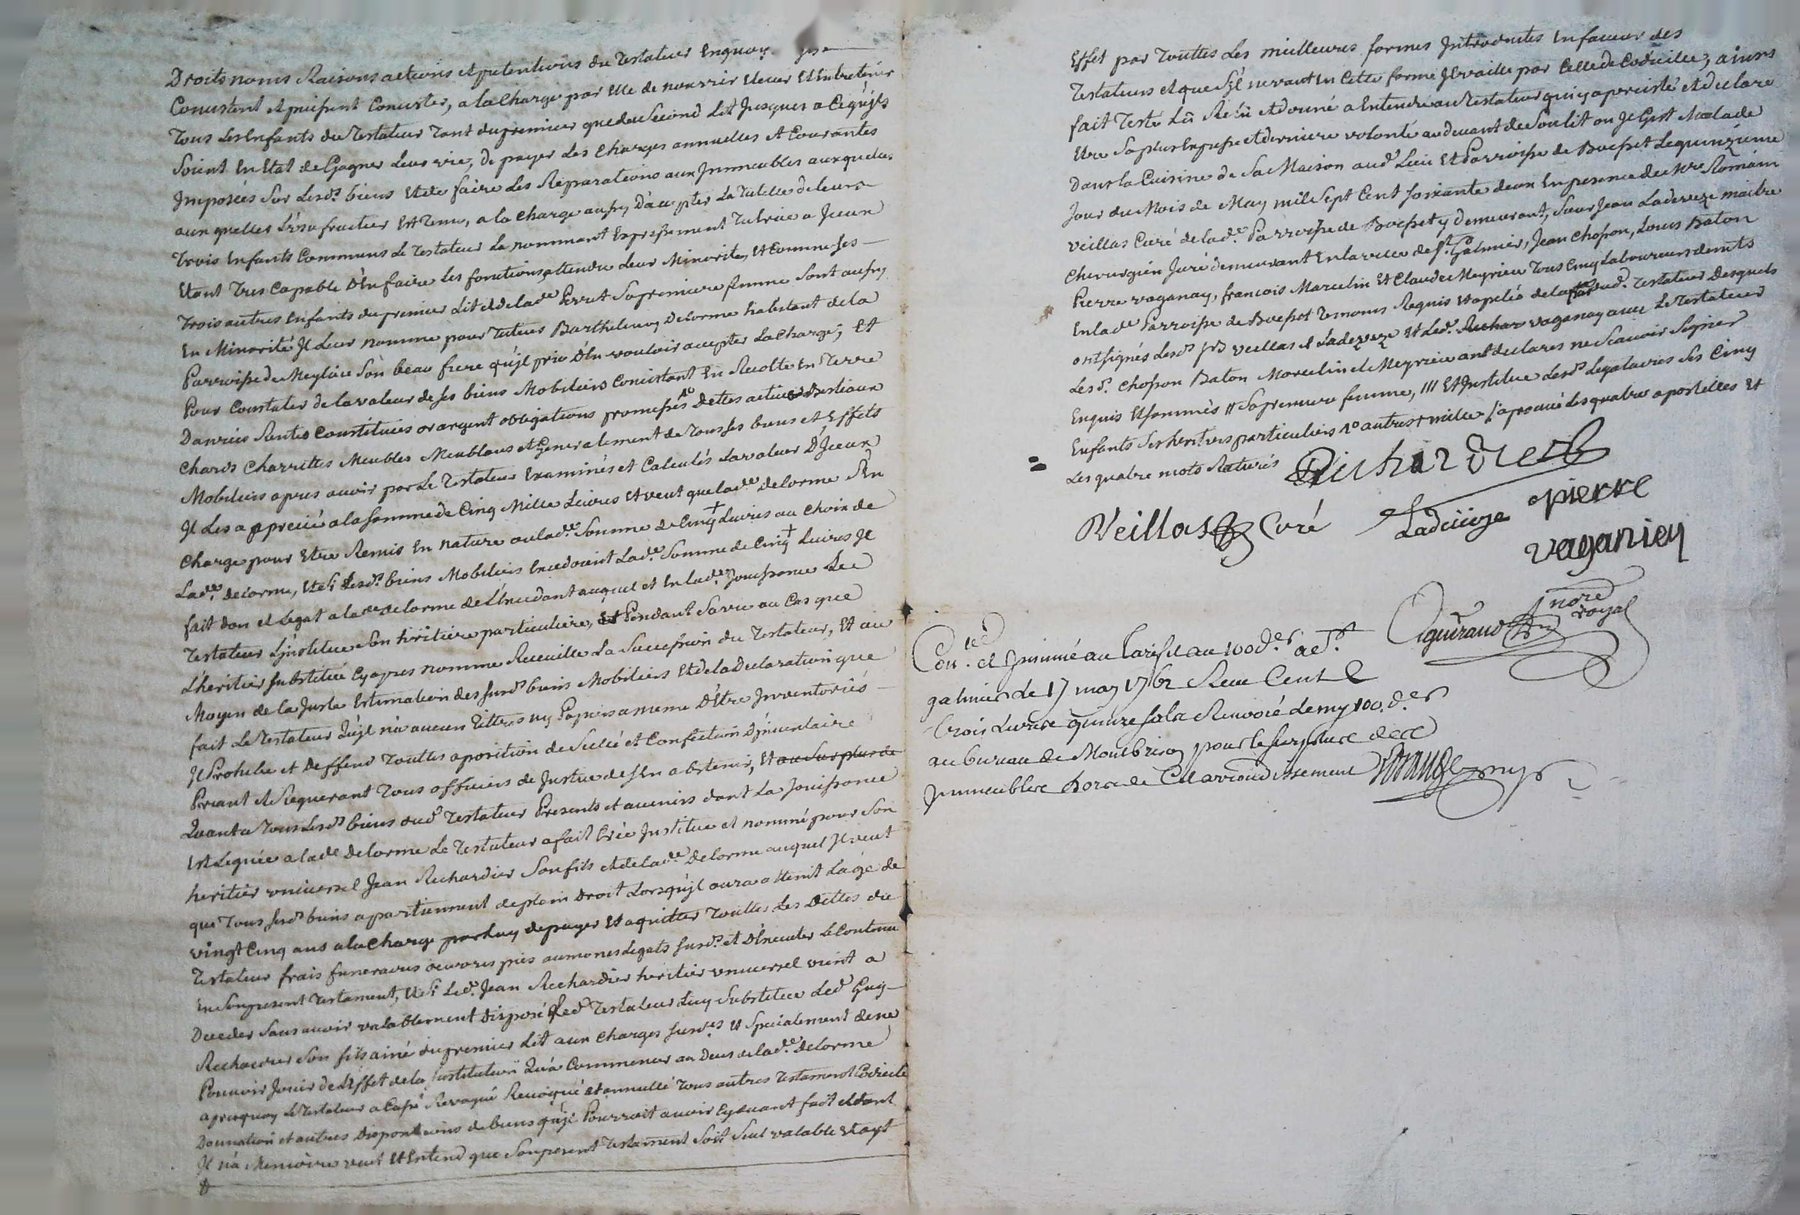 Droits noms Raisons actions et pretentions du Testateur Enquoy
Consistent et puissent Consister, a la Charge par Elle de nourrir Elever Et Entretenir
Tous les Enfants du Testateur Tant du premier que du Second Lit Jusques a Ce quils
Soient En Etat de Gagner Leur vie, De payer Les Charges annuelles Et Courantes
Imposées Sur Lesd.s biens Et de faire Les Reparations aux Immeubles auxquels
aux quelles L'usufruitier Est Tenu, a la Charge aussy D'accepter La Tutelle de leurs
Trois Enfants Communs Le Testateur La nommant Expressement Tutrice a Iceux
Etant Tres Capable D'En faire Les fonctions, attendu Leur Minorité, Et Comme Ses
Trois autres Enfants du premier Lit et de lad.e Perret Sa premiere femme Sont aussy
En Minorité Il Leur nomme pour Tuteur Barthelemy Delorme habitant de la
Parroisse de Meylieu Son beau frere qu'il prie D'En vouloir accepter La Charge; Et
Pour Constater de la valeur de Ses biens Mobiliers Consistant En Recolte En Terre
Danrées Rentes Constituées or argent obligations promesses Dettes actives Bestiaux
Chars Charrettes Meubles Meublans et Generalement de Tous Ses biens et Effets
Mobiliers apres avoir par Le Testateur Examinés et Calculés La valeur D'Iceux
Il Les a apprecié a la Somme de Cinq Mille Livres Et veut que lad.e Delorme S'En
Charge pour Etre Remis En nature ou lad.e Somme de Cinq + Livres au Choix de
Lad.e Delorme, Et Si Lesd.s biens Mobiliers Excedoient Lad.e Somme de Cinq + Livres Il
fait don et Legat a lad.e Delorme de L'Excedant auquel et En lad.e Jouissance Led
Testateur L'institue Son héritiere particuliere, Et Pendant Sa vie au Cas que
L'heritier Substitué Cy apres nommé Recueille La Succession du Testateur, Et au
Moyen de la Juste Estimation des Susd.s biens Mobiliers Et de la Declaration que
fait Le Testateur Qu'il n'a aucun Tittres ny Papiers a meme D'être Inventoriés
Il Prohibe et Deffend Touttes aposition de Scellé et Confection D'inventaire
Priant et Requerant Tous officiers de Justice de S'En abstenir, Et au Surplus de
Quant a Tous Lesd.s biens dud. Testateur Presents et avenirs dont La Jouissance
Est Leguée a lad.e Delorme Le Testateur a fait Crée Institué et nommé pour Son
heritier universel Jean Richardier Son fils et de lad.e Delorme auquel Il veut
que Tous Susd.s biens apartiennent de plein Droit Lorsqu'il aura atteint L'age de
vingt Cinq ans a la Charge par Luy de payer Et aquitter Touttes Les Dettes du
Testateur frais funeraires oeuvres pies aumones Legats Susd.s et D'Executer Le Contenu
En Son present Testament, Et Si Led. Jean Richardier heritier universel vient a
Deceder Sans avoir valablement Disposé Led. Testateur Luy Substitue Led. Guy
Richardier Son fils ainé du premier Lit aux Charges Susd.es Et Specialement de ne
Pouvoir Jouir de L'Effet de la Institution Qu'a Commencer au Deces de lad.e Delorme
apres quoy Le Testateur a Cassé Revoqué Revoqué Et annullé Tous autres Testament Codicile
Donnation et autres Dispositions de biens qu'il Pourroit avoir Cydevant fait et dont
Il n'a Memoire veut Et Entend que Son present Testament Soit Seul valable Et ayt
Effet par Touttes Les meilleures formes Introduites En faveur des
Testateurs et que S'il ne vaut En Cette forme Il vaille par Celle de Codicille; ainsi
fait Testé Lû Relû Et donné a Entendre au Testateur qui y a percisté et declaré
Etre Sa plus Expresse et derniere volonté au devant de Son lit ou Il Gist Malade
Dans la Cuisine de Sa Maison aud. Lieu Et Parroisse de Boisset Le quinzieme
Jour du Mois de May mil Sept Cent Soixante deux En presence de Mre Romain
Veillas Curé de lad.e Parroisse de Boisset y demeurant, Sieur Jean Ladeveze maitre
Chirurgien Juré demeurant En la ville de St. Galmier, Jean Chosson, Louis Baton
Pierre vaganay, francois Marcelin Et Claude Meyrieu Tous Cinq Laboureurs demts
En lad.e Parroisse de Boisset Temoins Requis Et apelés de la part dud. Testateur Desquels
ont Signés Lesd.s Srs veillas et Ladeveze et Led. vaganay avec Le Testateur
Lesd.s Chosson Baton Marcelin et Meyrieu ont declares ne Scavoir Signer
Enquis Et Sommés // Sa premiere femme, /// Et Institue Lesd.s Legataires Ses Cinq
Enfants Ses heritiers particuliers 1° autres + mille / aprouvé Les quatre apostilles Et
Les quatre mots Raturés
Richardier
Veillas Curé
Ladeveze
pierre
vaganiey
Aguiraud
nore
royal
Con.lé et Insinué au Tarif et au 100 d.er a St
galmier Le 17 may 1762 Reçu Cent
trois Livres quinze Sols Renvoié Le my 100.d.er
au bureau de Montbrison pour le Surplus des
Immeubles hors de Cet arrondissement